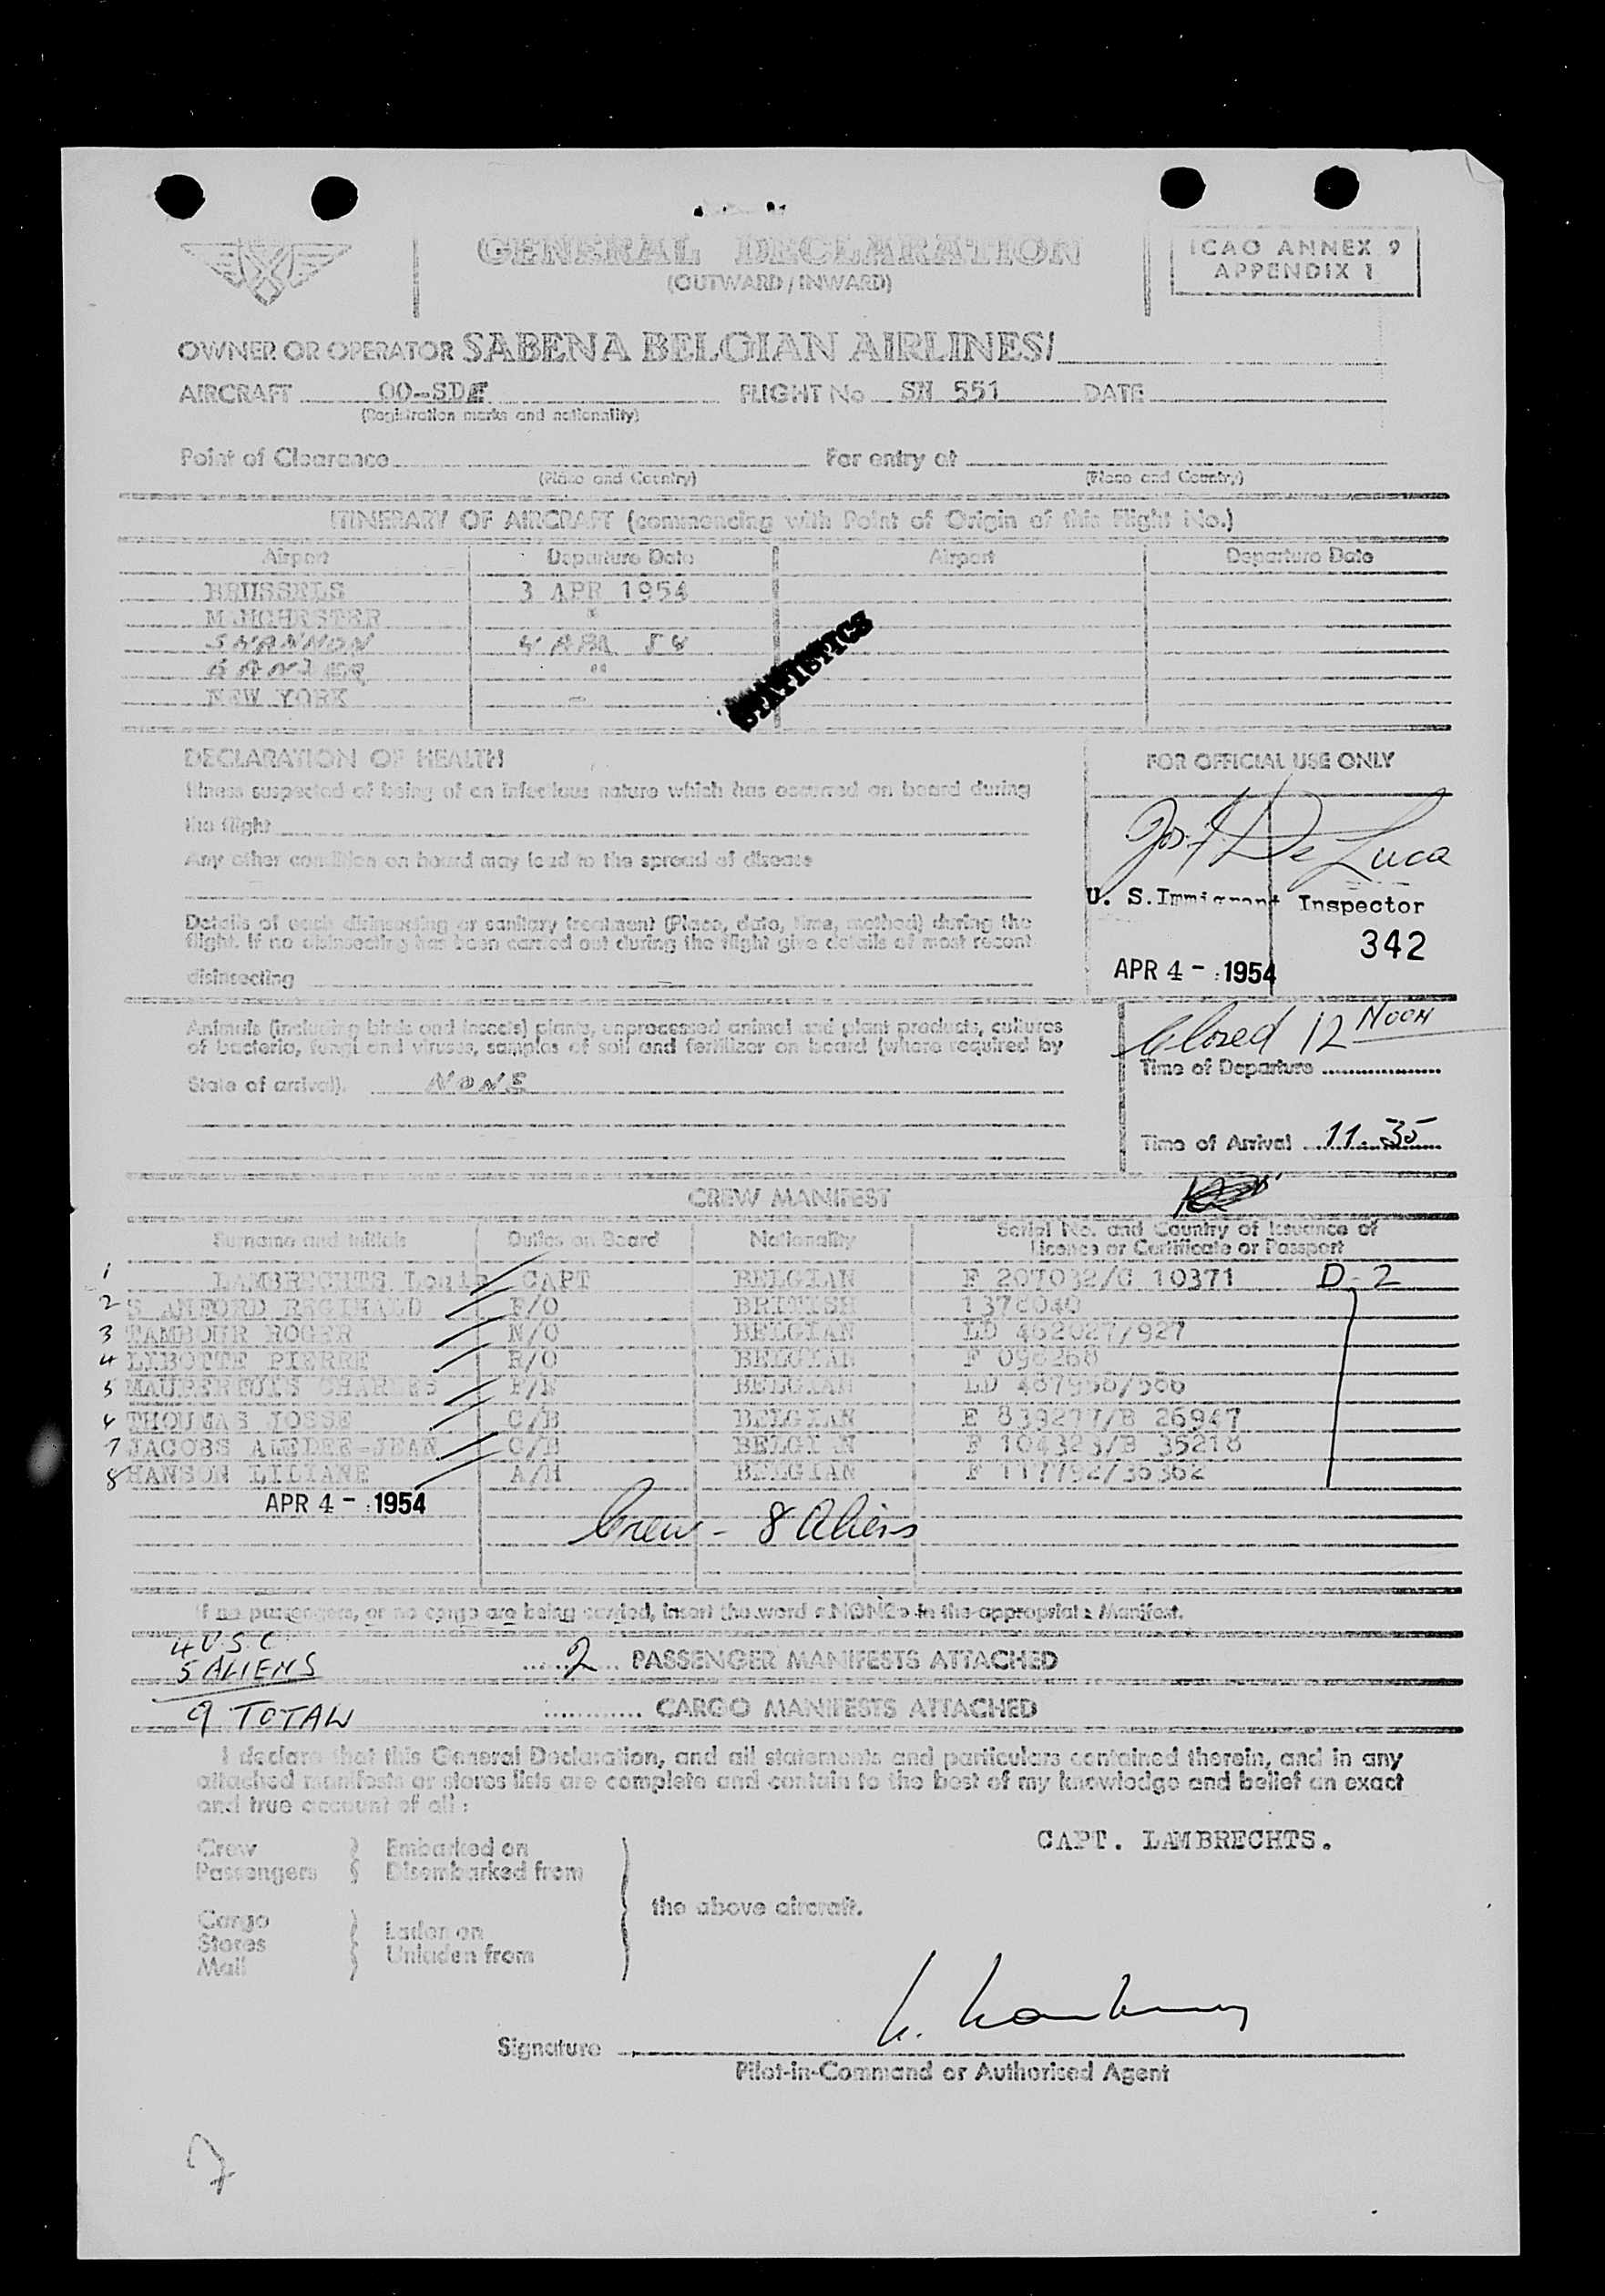 GENERAL DECLARATION
(OUTWARD / INWARD)
ICAO ANNEX 9
APPENDIX 1
OWNER OR OPERATOR SABENA BELGIAN AIRLINES/
AIRCRAFT OO-SD FLIGHT No SN 551 DATE
(Registration marks and nationality)
Point of Clearance For entry at
(Place and Country) (Place and Country)
ITINERARY OF AIRCRAFT (commencing with Point of Origin of this Flight No.)
Airport Departure Date Airport Departure Date
BRUSSELS 3 APR 1954
MANCHESTER "
SHANNON 4 APR 54
GANDER "
NEW YORK -
STATISTICS
DECLARATION OF HEALTH
Illness suspected of being of an infectious nature which has occurred on board during
the flight
Any other condition on board may lead to the spread of disease
Details of each disinsecting or sanitary treatment (Place, date, time, method) during the
flight. If no disinsecting has been carried out during the flight give details of most recent
disinsecting
FOR OFFICIAL USE ONLY
Jos. De Luca
U. S. Immigrant Inspector
342
APR 4 - 1954
Animals (including birds and insects) plants, unprocessed animal and plant products, cultures
of bacteria, fungi and viruses, samples of soil and fertilizer on board (where required by
State of arrival). NONE
Closed 12 NOON
Time of Departure
Time of Arrival 11.35
CREW MANIFEST
Surname and Initials Duties on Board Nationality Serial No. and Country of Issuance of
Licence or Certificate or Passport
1 LAMBRECHTS Louis CAPT BELGIAN F 207032/C 10371 D-2
2 AMFORD REGINALD F/O BRITISH
3 TAMBOUR ROGER N/O BELGIAN LD 462027/927
4 LYBOTTE PIERRE R/O BELGIAN
5 CHARLES BELGIAN
THOUMAS JOSSE BELGIAN E 839277/B 26947
7 JACOBS AMEDEE-JEAN BELGIAN F 104323/B 35218
8 HANSON LILIANE A/H BELGIAN F 117792/36362
APR 4 - 1954
Crew - 8 Aliens
If no passengers, or no cargo are being carried, insert the word «NONE» in the appropriate Manifest.
4 U.S.C.
5 ALIENS
9 TOTAL
2 PASSENGER MANIFESTS ATTACHED
CARGO MANIFESTS ATTACHED
I declare that this General Declaration, and all statements and particulars contained therein, and in any
attached manifests or stores lists are complete and contain to the best of my knowledge and belief an exact
and true account of all :
CAPT. LAMBRECHTS.
Crew Embarked on
Passengers Disembarked from
the above aircraft.
Cargo
Stores Laden on
Mail Unladen from
Signature
Pilot-in-Command or Authorised Agent